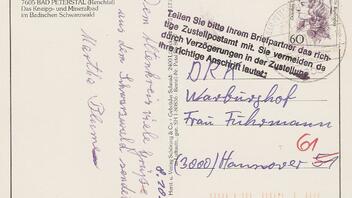 7605 BAD PETERSTAL (Renchtal)
Das Kneipp- und Mineralbad
im Badischen Schwarzwald
Dem Altenkreis viele Grüße
aus dem Schwarzwald
Martha
8.10.
Teilen Sie bitte Ihrem Briefpartner das rich-
tige Zustellpostamt mit. Sie vermeiden da-
durch Verzögerungen in der Zustellung.
Ihre richtige Anschrift lautet:
60
DRK
Warburghof
Frau Fuhrmann
61
(3000) Hannover 51